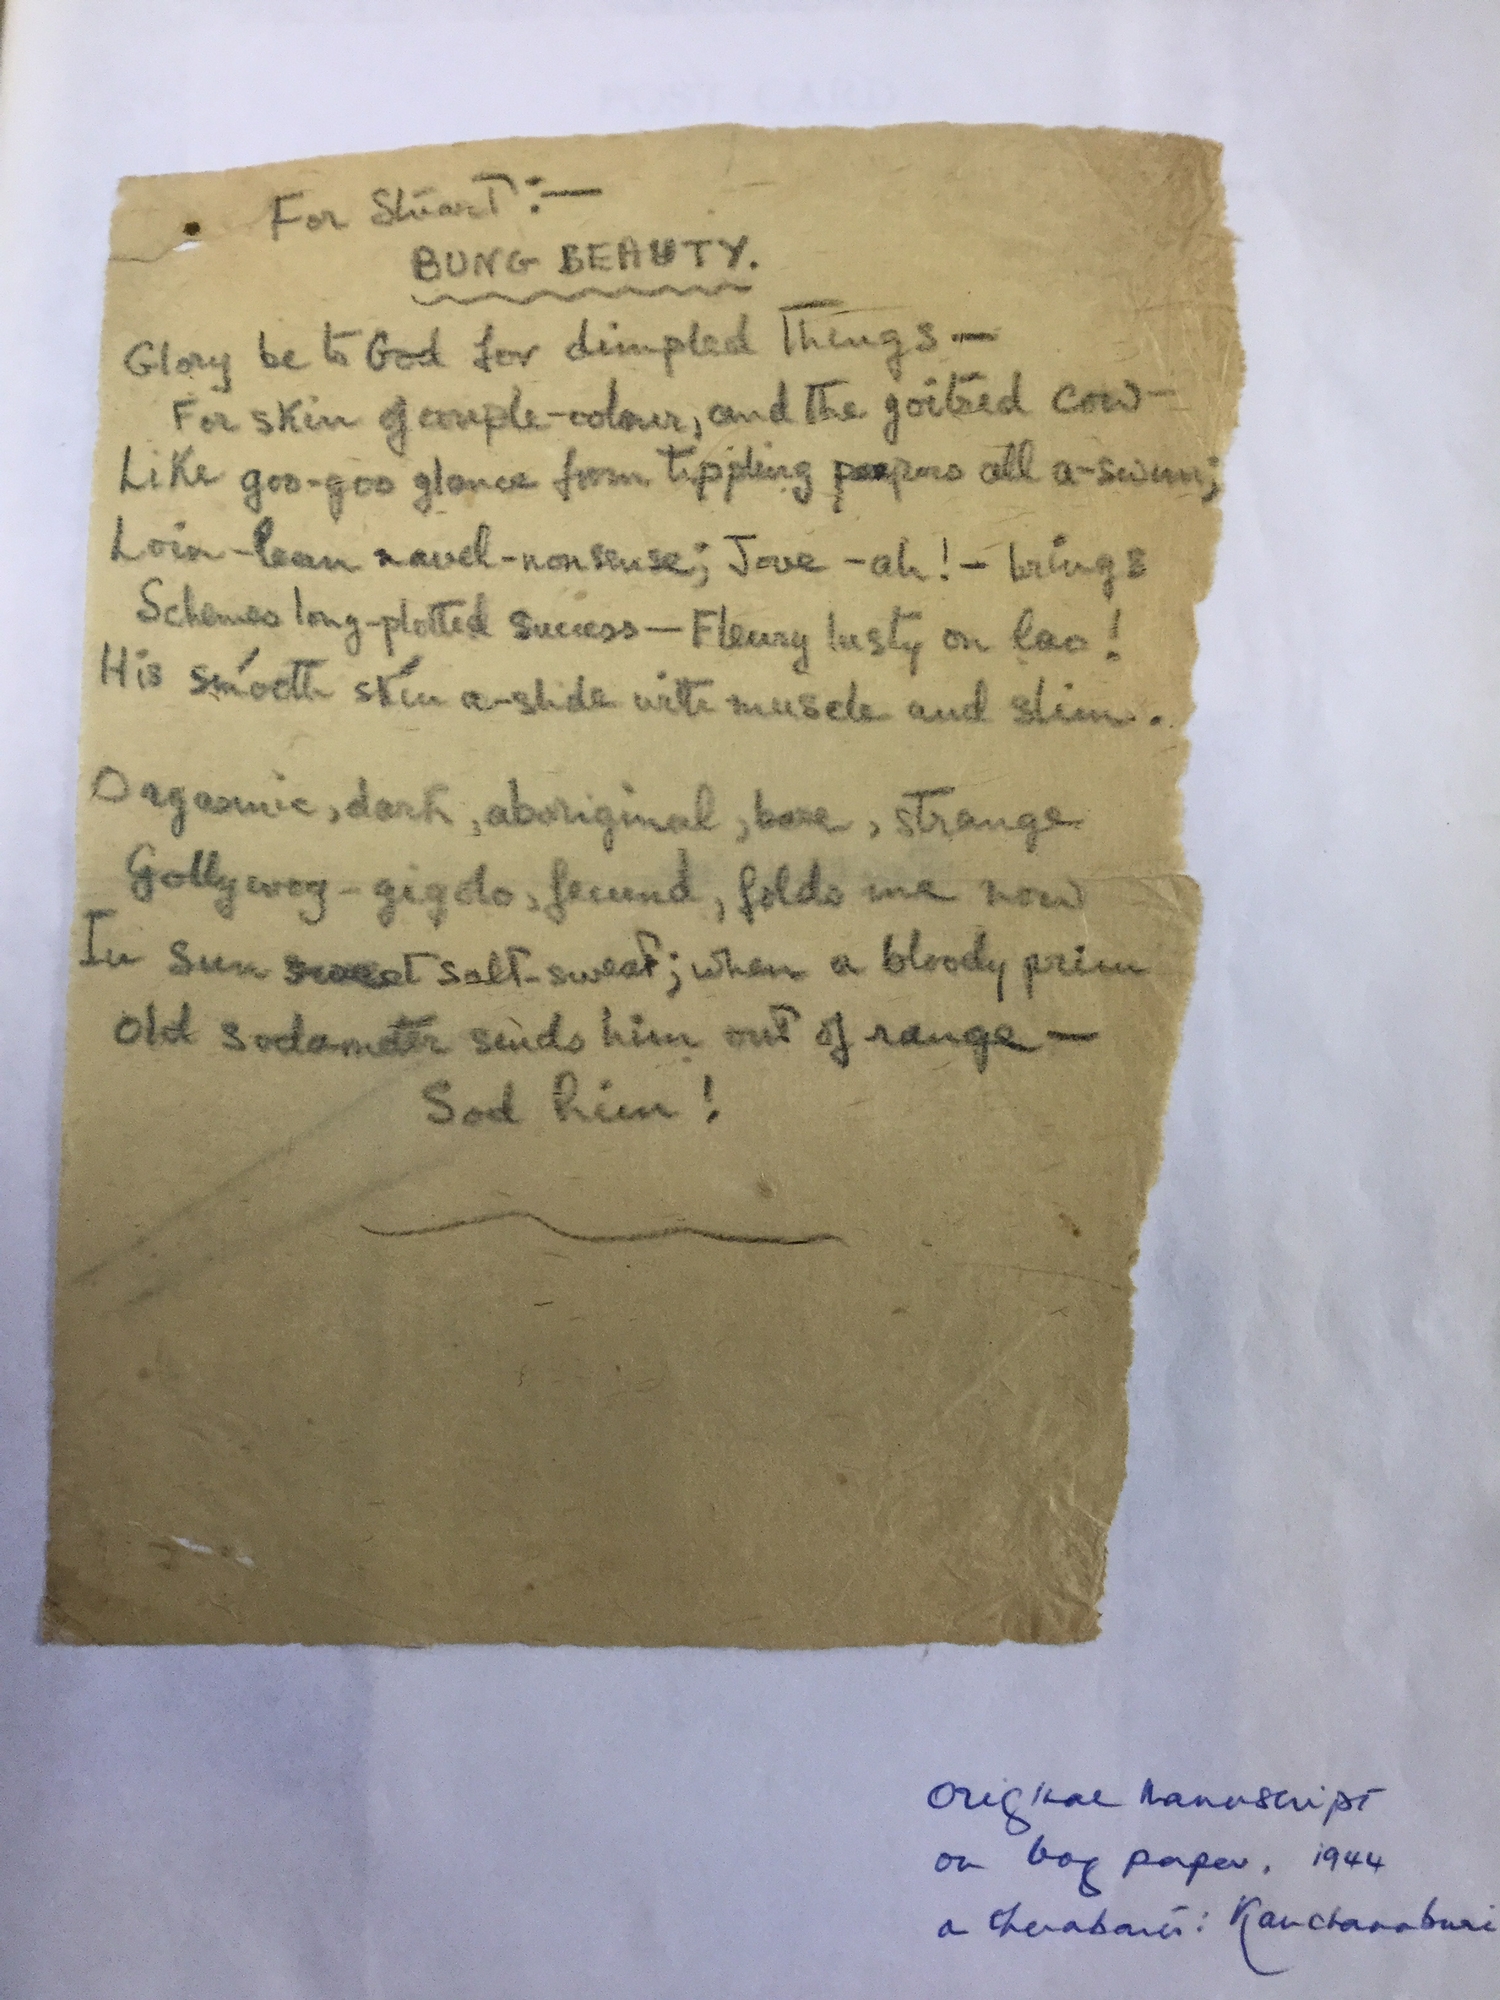 For Stuart :—
BUNG BEAUTY.
Glory be to God for dimpled Things —
For skin of couple-colour, and the goitred cow —
Like goo-goo glance from tippling peepers all a-swim;
Loin-lean navel-nonsense; Jove - ah! - brings
Schemes long-plotted success — Fleury lusty on lao!
His smóoth skín a-slide with muscle and slim.
Orgasmic, dark, aboriginal, bare, strange
Gollywog-gigolo, fecund, folds me now
In sun sweet salt-sweat; when a bloody prim
Old sodamator sends him out of range —
Sod him!
Original Manuscript
on bog paper. 1944
Kanchanaburi